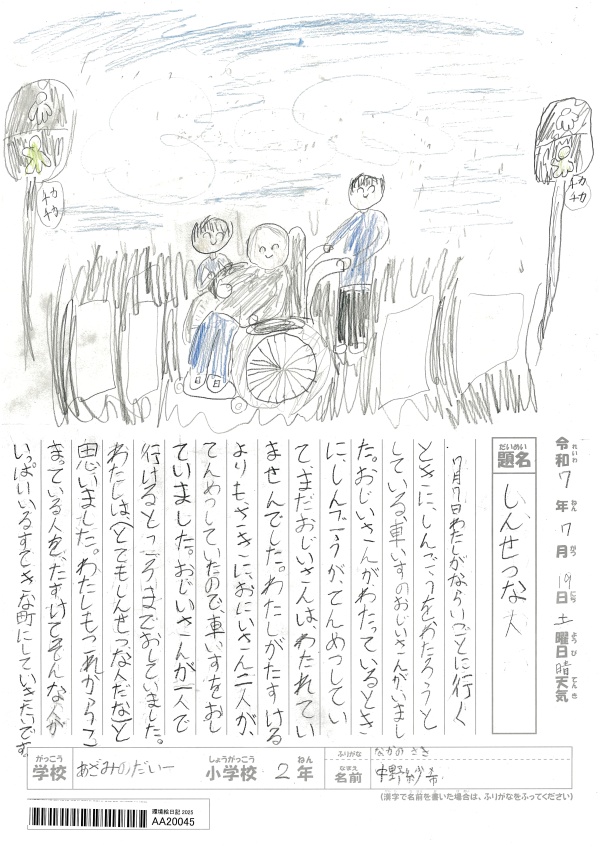 チカ
チカ
チカ
チカ
令和7年7月19日土曜日晴天気
れいわ ねん がつ にち よう び てん き
だいめい
題名
しんせつな人
7月7日わたしがならいごとに行く
ときに、しんごうをわたろうと
している、車いすのおじいさんが、いまし
た。おじいさんがわたっているとき
に、しんごうが、てんめつしてい
てまだおじいさんは、わたれてい
ませんでした。わたしがたすける
よりも、さきに、おにいさん二人が、
てんめつしていたので、車いすをおし
ていました。おじいさんが一人で
行けるところまでおしていました。
わたしは(とてもしんせつな人だな)と
思いました。わたしもこれからこ
まっている人を、たすけてそんな人が
いっぱいいるすてきな町にしていきたいです。
がっこう
学校
あざみのだい一
しょうがっこう
小学校
2
ねん
年
ふりがな
なかの さき
なまえ
名前
中野紗希
(漢字で名前を書いた場合は、ふりがなをふってください)
環境絵日記 2025
AA20045